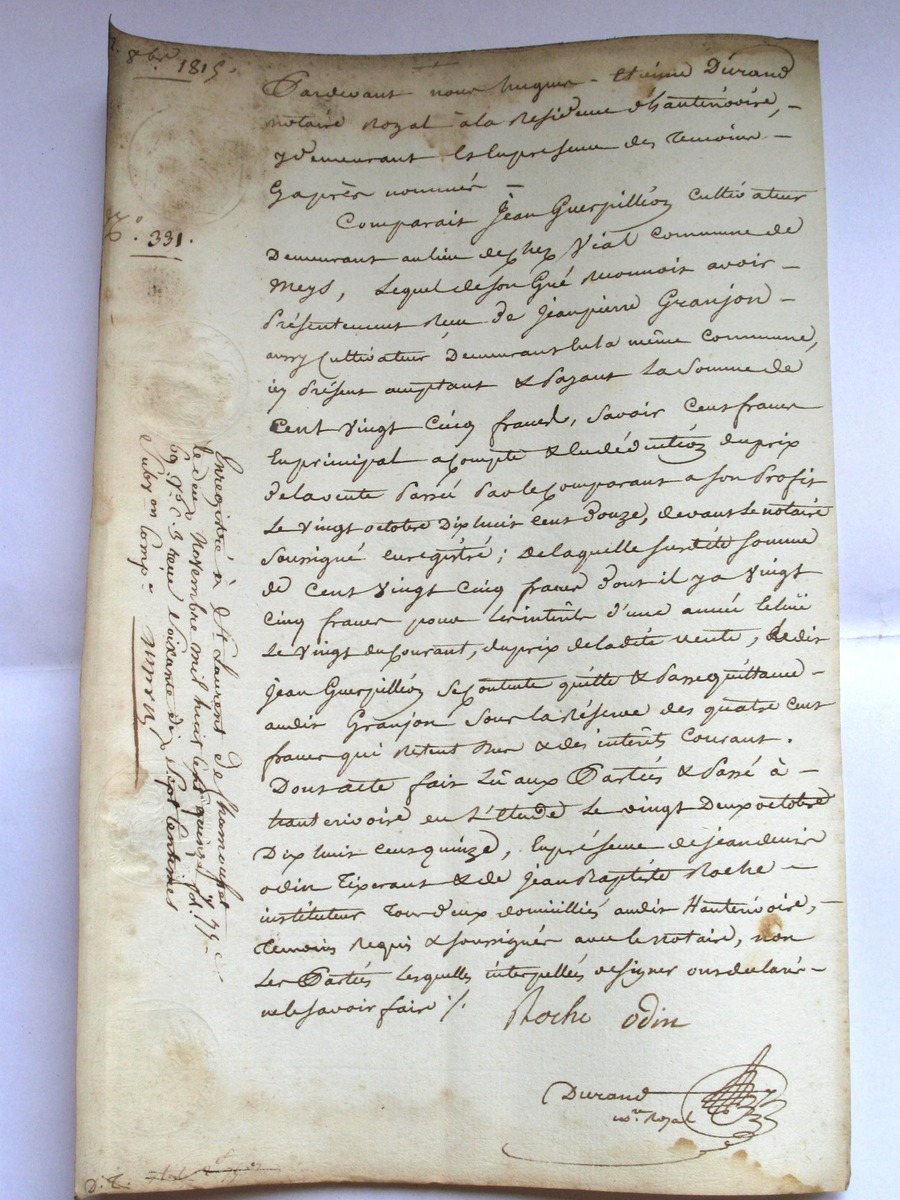 8bre 1815.
N.° 331.
Pardevant nous hugues - Etienne Durand
notaire Royal a la Residence d'hauterivoire, -
y demeurant et En presence des temoins -
Cy après nommés -
Comparait Jean Guerpilléon cultivateur
Demeurant au lieu de chez Vial Commune de
Meys, Lequel de son Gré Reconnoit avoir -
Présentement Recu de Jeanpierre Granjon -
aussy Cultivateur Demeurant En la même Commune,
icy Présent acceptant & Payant La Somme de
Cent Vingt Cinq francs, Savoir Cent francs
En principal a Compte & En déduction du prix
de la vente Passée Par le Comparant a son Profit
Le Vingt octobre Dix huit cent Douze, devant Le notaire
Soussigné enregistré ; de laquelle susdite somme
de Cent Vingt Cinq francs Dont il y a Vingt
Cinq francs pour Les intérêts d'une année Echue
Le Vingt du Courant, du prix de la dite vente, Ledit
Jean Guerpilléon Se Contente quitte & Passe quittance -
audit Granjon Sous la Réserve des quatre cent
francs qui Restent Dus & des intérêts Courant.
Dont acte fait Lû aux Parties & Passé à -
hauterivoire en L'Etude Le vingt Deux octobre
Dix huit Cent quinze, En présence de Jean denis
odin Tixerant & de Jean Baptiste Roche -
instituteur Tous deux domiciliés audit Hauterivoire, -
temoins Requis & soussignés avec le notaire, non
Les Parties Lesquelles interpellées de signer ont declaré -
ne le savoir faire /.
Roche odin
Durand
nore Royal
Enregistré à St Laurent de Chamousset
le deux Novembre mil huit cent quinze fol. 79
69 Vo C. 3 reçu soixante dix sept Centimes
Subv. on Comp.e
D. E.